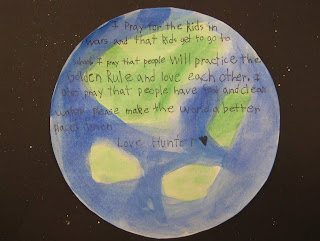 I Pray for the kids in
wars and that kids get to go to
school. I pray that people will practice the
Golden Rule and love each other. I
also pray that people have food and clean
water. please make the world a better
place. Amen
Love Hunter